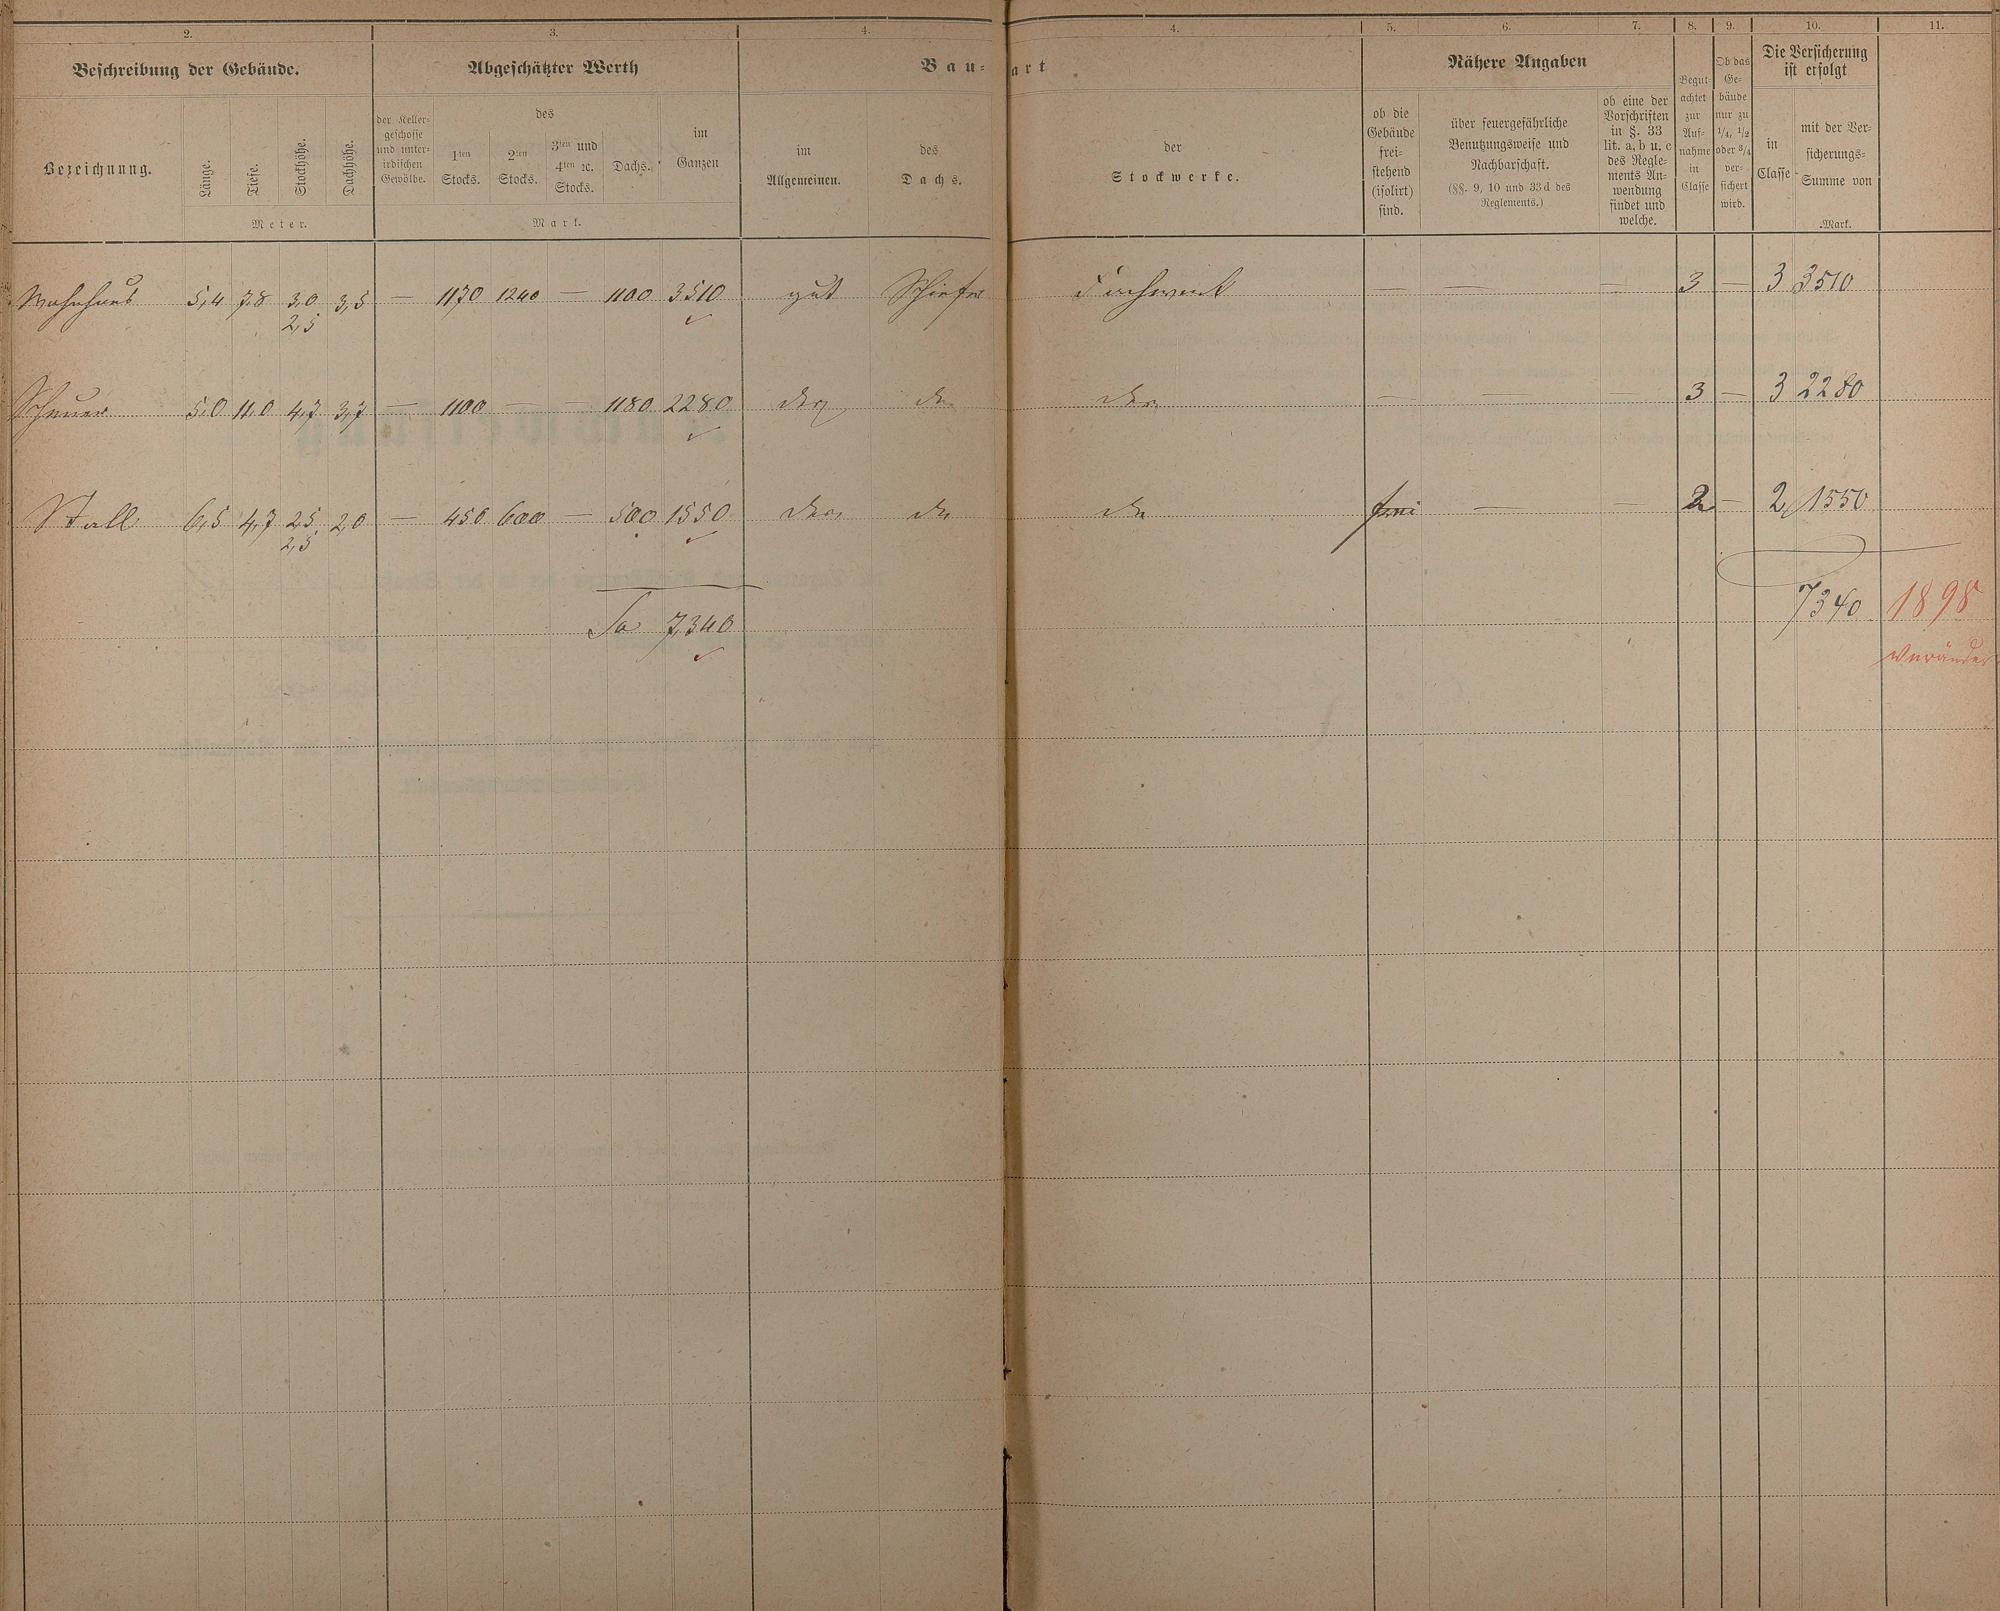 2. 3. 4. 4. 5. 6. 7. 8. 9. 10. 11.
Beschreibung der Gebäude. Abgeschätzter Werth Bau- art Nähere Angaben Die Versicherung
ist erfolgt
Bezeichnung.
Länge. Tiefe. Stockhöhe. Dachhöhe.
Meter.
der Keller-
geschosse
und unter-
irdischen
Gewölbe.
des
1ten
Stocks.
2ten
Stocks.
3ten und
4ten ꝛc.
Stocks.
Dachs.
im
Ganzen
Mark.
im
Allgemeinen.
des
Dachs.
der
Stockwerke.
ob die
Gebäude
frei-
stehend
(isolirt)
sind.
über feuergefährliche
Benutzungsweise und
Nachbarschaft.
(§§. 9, 10 und 33d des
Reglements.)
ob eine der
Vorschriften
in §. 33
lit. a, b u. c
des Regle-
ments An-
wendung
findet und
welche.
Begut-
achtet
zur
Auf-
nahme
in
Classe
Ob das
Ge-
bäude
nur zu
1/4, 1/2
oder 3/4
ver-
sichert
wird.
in
Classe
mit der Ver-
sicherungs-
Summe von
Mark.
Wohnhaus 5,4 7,8 3,0 3,5 — 1170 1240 — 1100 3510 gut Schiefer Fachwerk — — — 3 — 3 3510
2,5
Scheuer 5,0 11,0 4,7 3,7 — 1100 — — 1180 2280 — — — 3 — 3 2280
Stall 6,5 4,7 2,5 2,0 — 450 600 — 500 1550 frei — — 2 — 2 1550
2,5
Sa 7,340 7340 1898